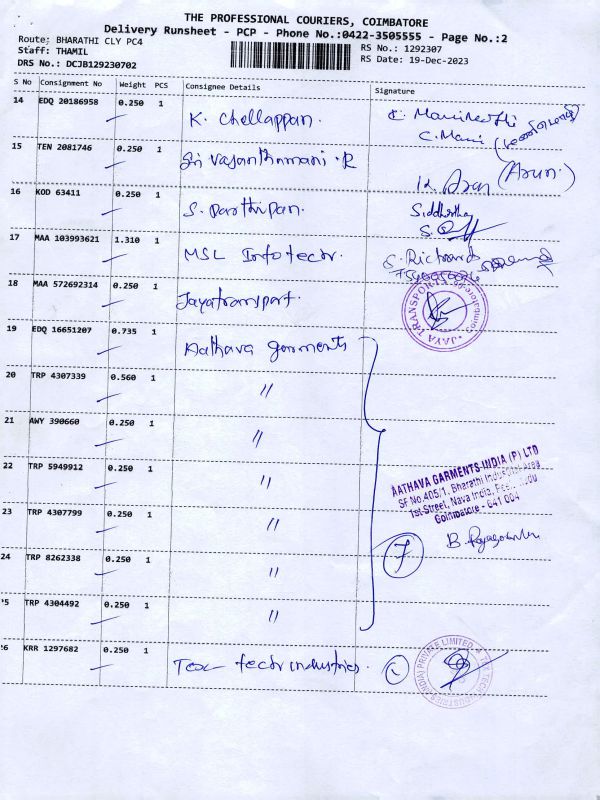 THE PROFESSIONAL COURIERS, COIMBATORE
Delivery Runsheet - PCP - Phone No.:0422-3505555 - Page No.:2
Route: BHARATHI CLY PC4 RS No.: 1292307
Staff: THAMIL RS Date: 19-Dec-2023
DRS No.: DCJB129230702
S No Consignment No Weight PCS Consignee Details Signature
14 EDQ 20186958 0.250 1 K. Chellappan.
C. Mani
15 TEN 2081746 0.250 1 Sri Vasanthamani .R
(Arun)
16 KOD 63411 0.250 1 S. Parthipan. Siddhartha
17 MAA 103993621 1.310 1 MSL Infotech. S. Richard
18 MAA 572692314 0.250 1 Jayatransport. JAYA TRANSPORT
19 EDQ 16651207 0.735 1 Aathava garments
20 TRP 4307339 0.560 1 "
21 AWY 390660 0.250 1 "
22 TRP 5949912 0.250 1 "
AATHAVA GARMENTS INDIA (P) LTD
SF No.405/1, Bharathi Industrial Area
1st Street, Nava India,
Coimbatore - 641 004
23 TRP 4307799 0.250 1 "
7
24 TRP 8262338 0.250 1 "
25 TRP 4304492 0.250 1 "
26 KRR 1297682 0.250 1 Tex tech industries.
TEX TECH INDUSTRIES (INDIA) PRIVATE LIMITED